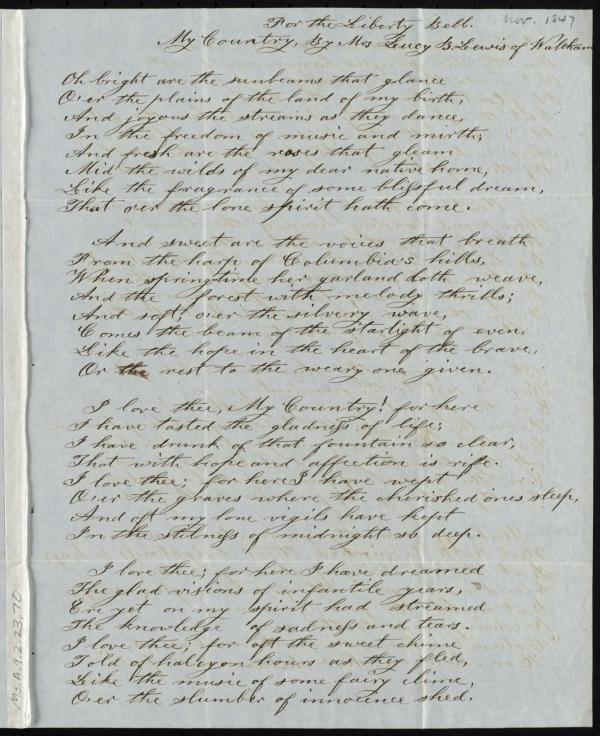 For the Liberty Bell.
Nov. 1847
My Country, By Mrs Lucy B. Lewis of Waltham
Oh bright are the sunbeams that glance
O'er the plains of the land of my birth,
And joyous the streams as they dance,
In the freedom of music and mirth;
And fresh are the roses that gleam
Mid the wilds of my dear native home,
Like the fragrance of some blissful dream,
That over the lone spirit hath come.
And sweet are the voices that breath
From the harp of Columbia's hills,
When springtime her garland doth weave,
And the forest with melody thrills;
And soft, over the silvery wave,
Comes the beam of the starlight of even,
Like the hope in the heart of the brave,
Or the rest to the weary one given.
I love thee, My Country! for here
I have tasted the gladness of life;
I have drunk of that fountain so clear,
That with hope and affection is rife.
I love thee; for here I have wept
O'er the graves where the cherished ones sleep,
And oft my lone vigils have kept
In the stilness of midnight so deep.
I love thee; for here I have dreamed
The glad visions of infantile years,
Ere yet on my spirit had streamed
The knowledge of sadness and tears.
I love thee; for oft the sweet chime
Told of halcyon hours as they fled,
Like the music of some fairy clime,
Over the slumber of innocence shed.
Ms.A.9.2.23.70